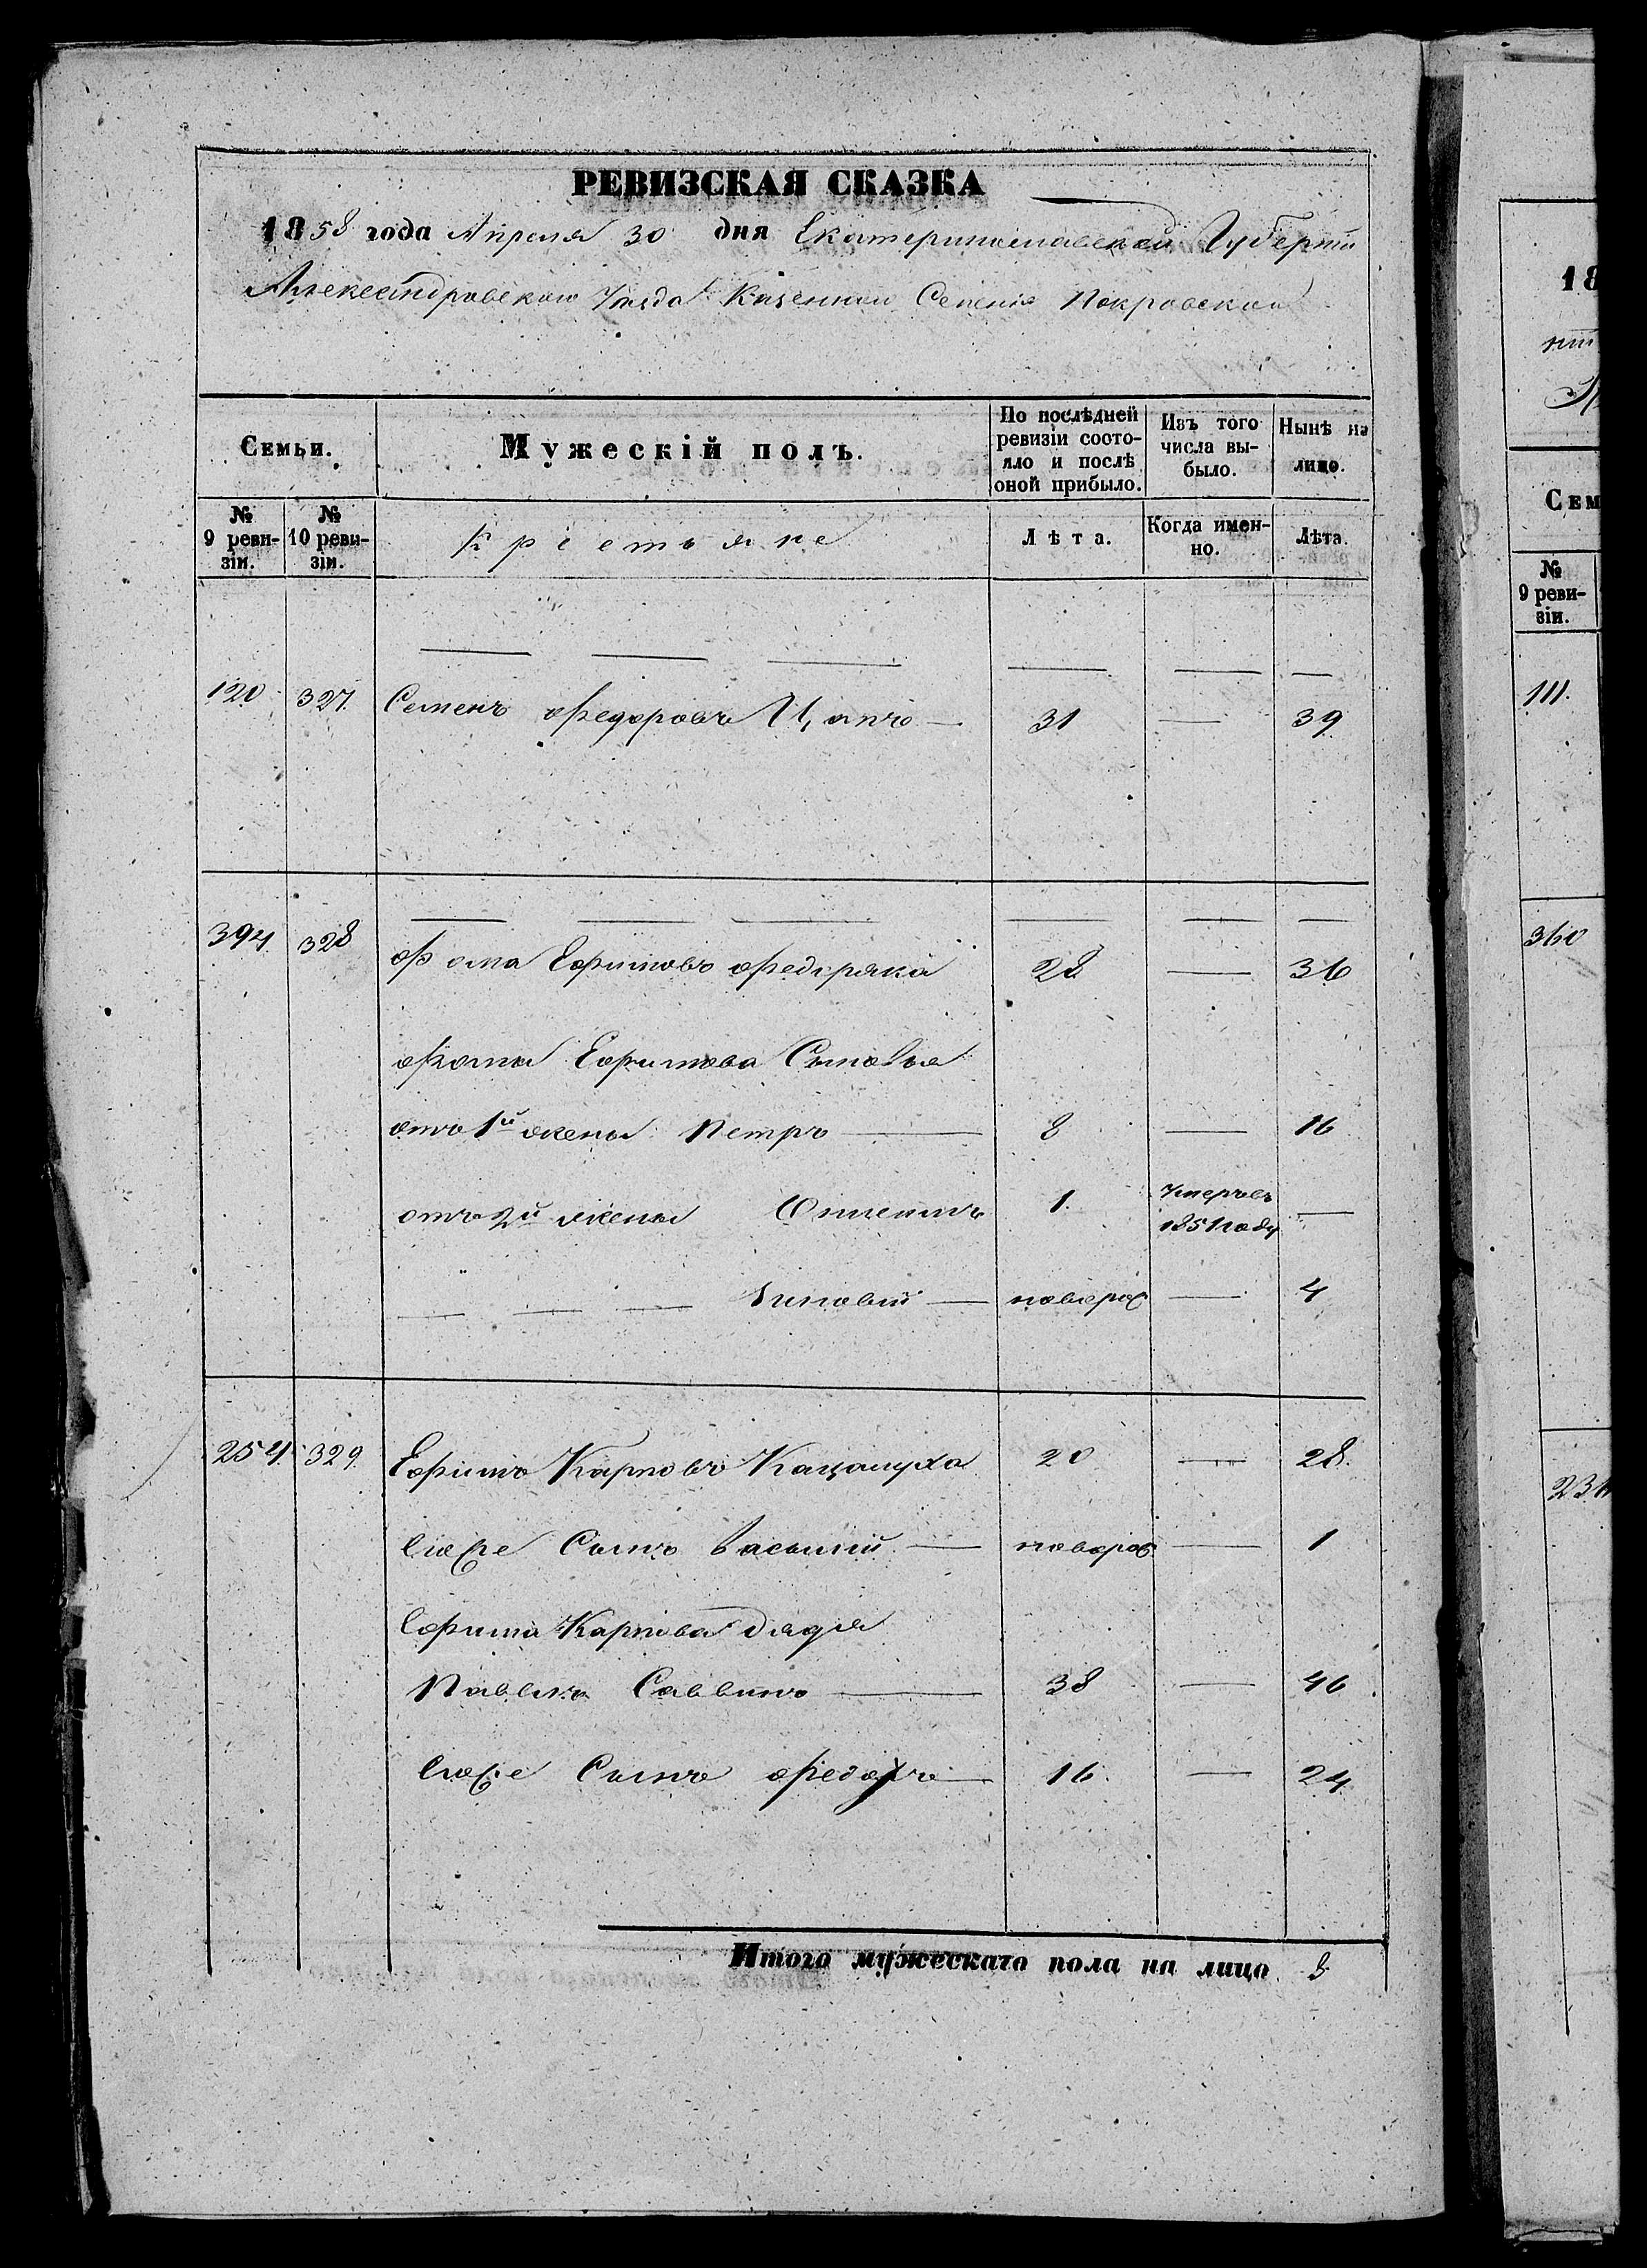 РЕВИЗСКАЯ СКАЗКА
1858 года Апреля 30 дня Екатеринославской Губерніи
Александровскаго Уезда Казеннаго Селенія Покровскаго
Семьи.
Мужескій полъ.
По послѣдней ревизіи состо-яло и послѣ оной прибыло.
Изъ того числа вы-было.
Нынѣ на лицо.
№ 9 реви-зіи.
№ 10 реви-зіи.
Крістьяне
Лѣта.
Когда имен-но.
Лѣта.
120 327 Семенъ Федоровъ Цапъ — 31 — 39
394 328 Фома Ефимовъ Федиряка 28 — 36
Фомы Ефимова Сыновья
отъ 1й жены Петръ — 8 — 16
отъ 2й жены 1. Умеръ въ 1851 году —
— — — Зиновій — новорож — 4
254 329 Ефимъ Карповъ Кацалуха 20 — 28.
Его же Сынъ Василій — новорож — 1
Ефима Карпова дядя
Павелъ Саввинъ — 38 — 46
Его же Сынъ Федоръ — 16. — 24
Итого мужескаго пола на лицо 8
18
Сем
№ 9 реви-зіи.
111.
360